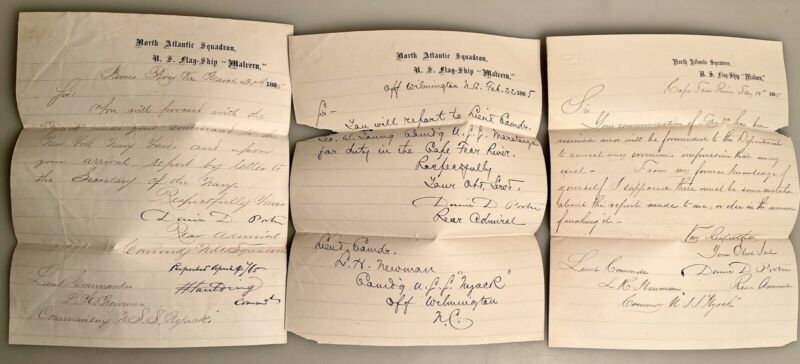 North Atlantic Squadron,
U. S. Flag-Ship "Malvern,"
James River Va March 1865
Sir:
You will proceed with the
your command to the
New York Navy Yard and upon
your arrival, report by letter to
the Secretary of the Navy.
Respectfully Yours
David D Porter
Rear Admiral
Comdg Squadron
Reported April 1/65
Comdt
Lieut Commander
L. H. Newman
Commanding U.S.S. Nyack
North Atlantic Squadron,
U. S. Flag-Ship "Malvern,"
Off Wilmington N.C. Feb. 22, 1865
Sir—
You will report to Lieut Comdr.
Geo. W. Young Comdg U.S.S. Maratanza
for duty in the Cape Fear River.
Respectfully
Your Obt. Servt.
David D Porter
Rear Admiral
Lieut. Comdr.
L. H. Newman
Comdg U.S.S. "Nyack"
Off Wilmington
N.C.
North Atlantic Squadron,
U. S. Flag-Ship "Malvern,"
Cape Fear River Feby 10th 1865
Sir,
Your communication of Feby has been
received and will be forwarded to the Department
to correct any erroneous impression that may
exist — From my former knowledge of
yourself I supposed there must be some mistake
about the report made to me, or else in the manner
of making it —
Very Respectfully
Your Obdt Servt
David D Porter
Rear Admiral
Lieut Commdr
L H Newman
Commdg U S S "Nyack"